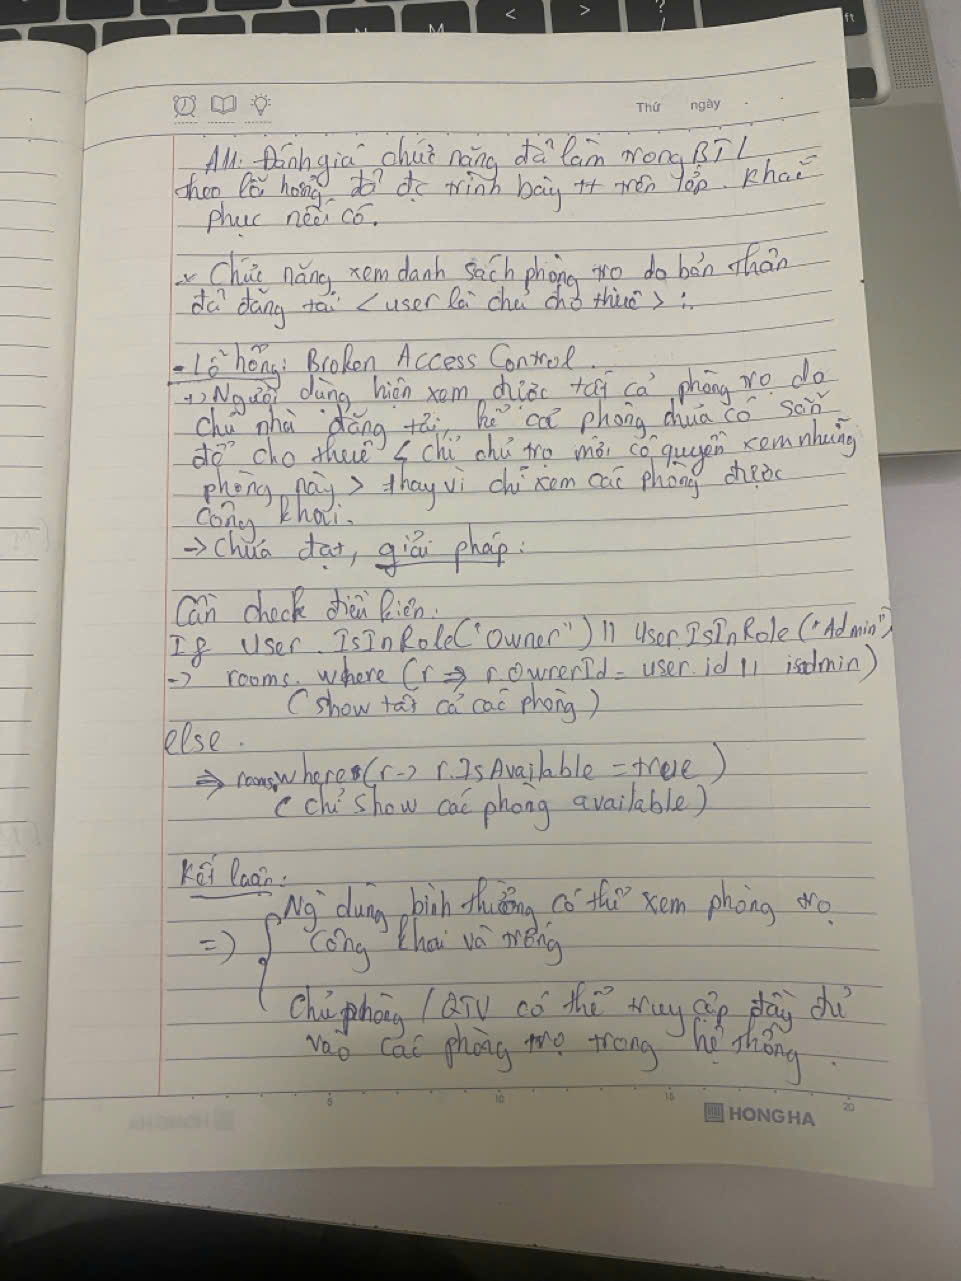 Thứ ngày
A11: Đánh giá chức năng đã làm trong BTL
theo lỗ hổng đã đc trình bày tt trên lớp. Khắc
phục nếu có.
Chức năng xem danh sách phòng trọ do bản thân
đã đăng tải <user là chủ cho thuê>:
- Lỗ hổng: Broken Access Control.
+> Người dùng hiện xem được tất cả phòng trọ do
chủ nhà đăng tải, kể cả phòng chưa có sẵn
để cho thuê < chỉ chủ trọ mới có quyền xem những
phòng này > thay vì chỉ xem các phòng được
công khai.
-> Chưa đạt, giải pháp:
Cần check điều kiện:
If User.IsInRole("Owner") || User.IsInRole("Admin")
-> rooms.where(r => r.OwnerId = user.id || isadmin)
(show tất cả các phòng)
else.
=> rooms.Where(r -> r.IsAvailable = true)
(chỉ show các phòng available)
Kết luận:
Ng dùng bình thường có thể xem phòng trọ
=> công khai và trống
Chủ phòng / QTV có thể truy cập đầy đủ
vào các phòng trọ trong hệ thống.
5 10 15 20
HONG HA